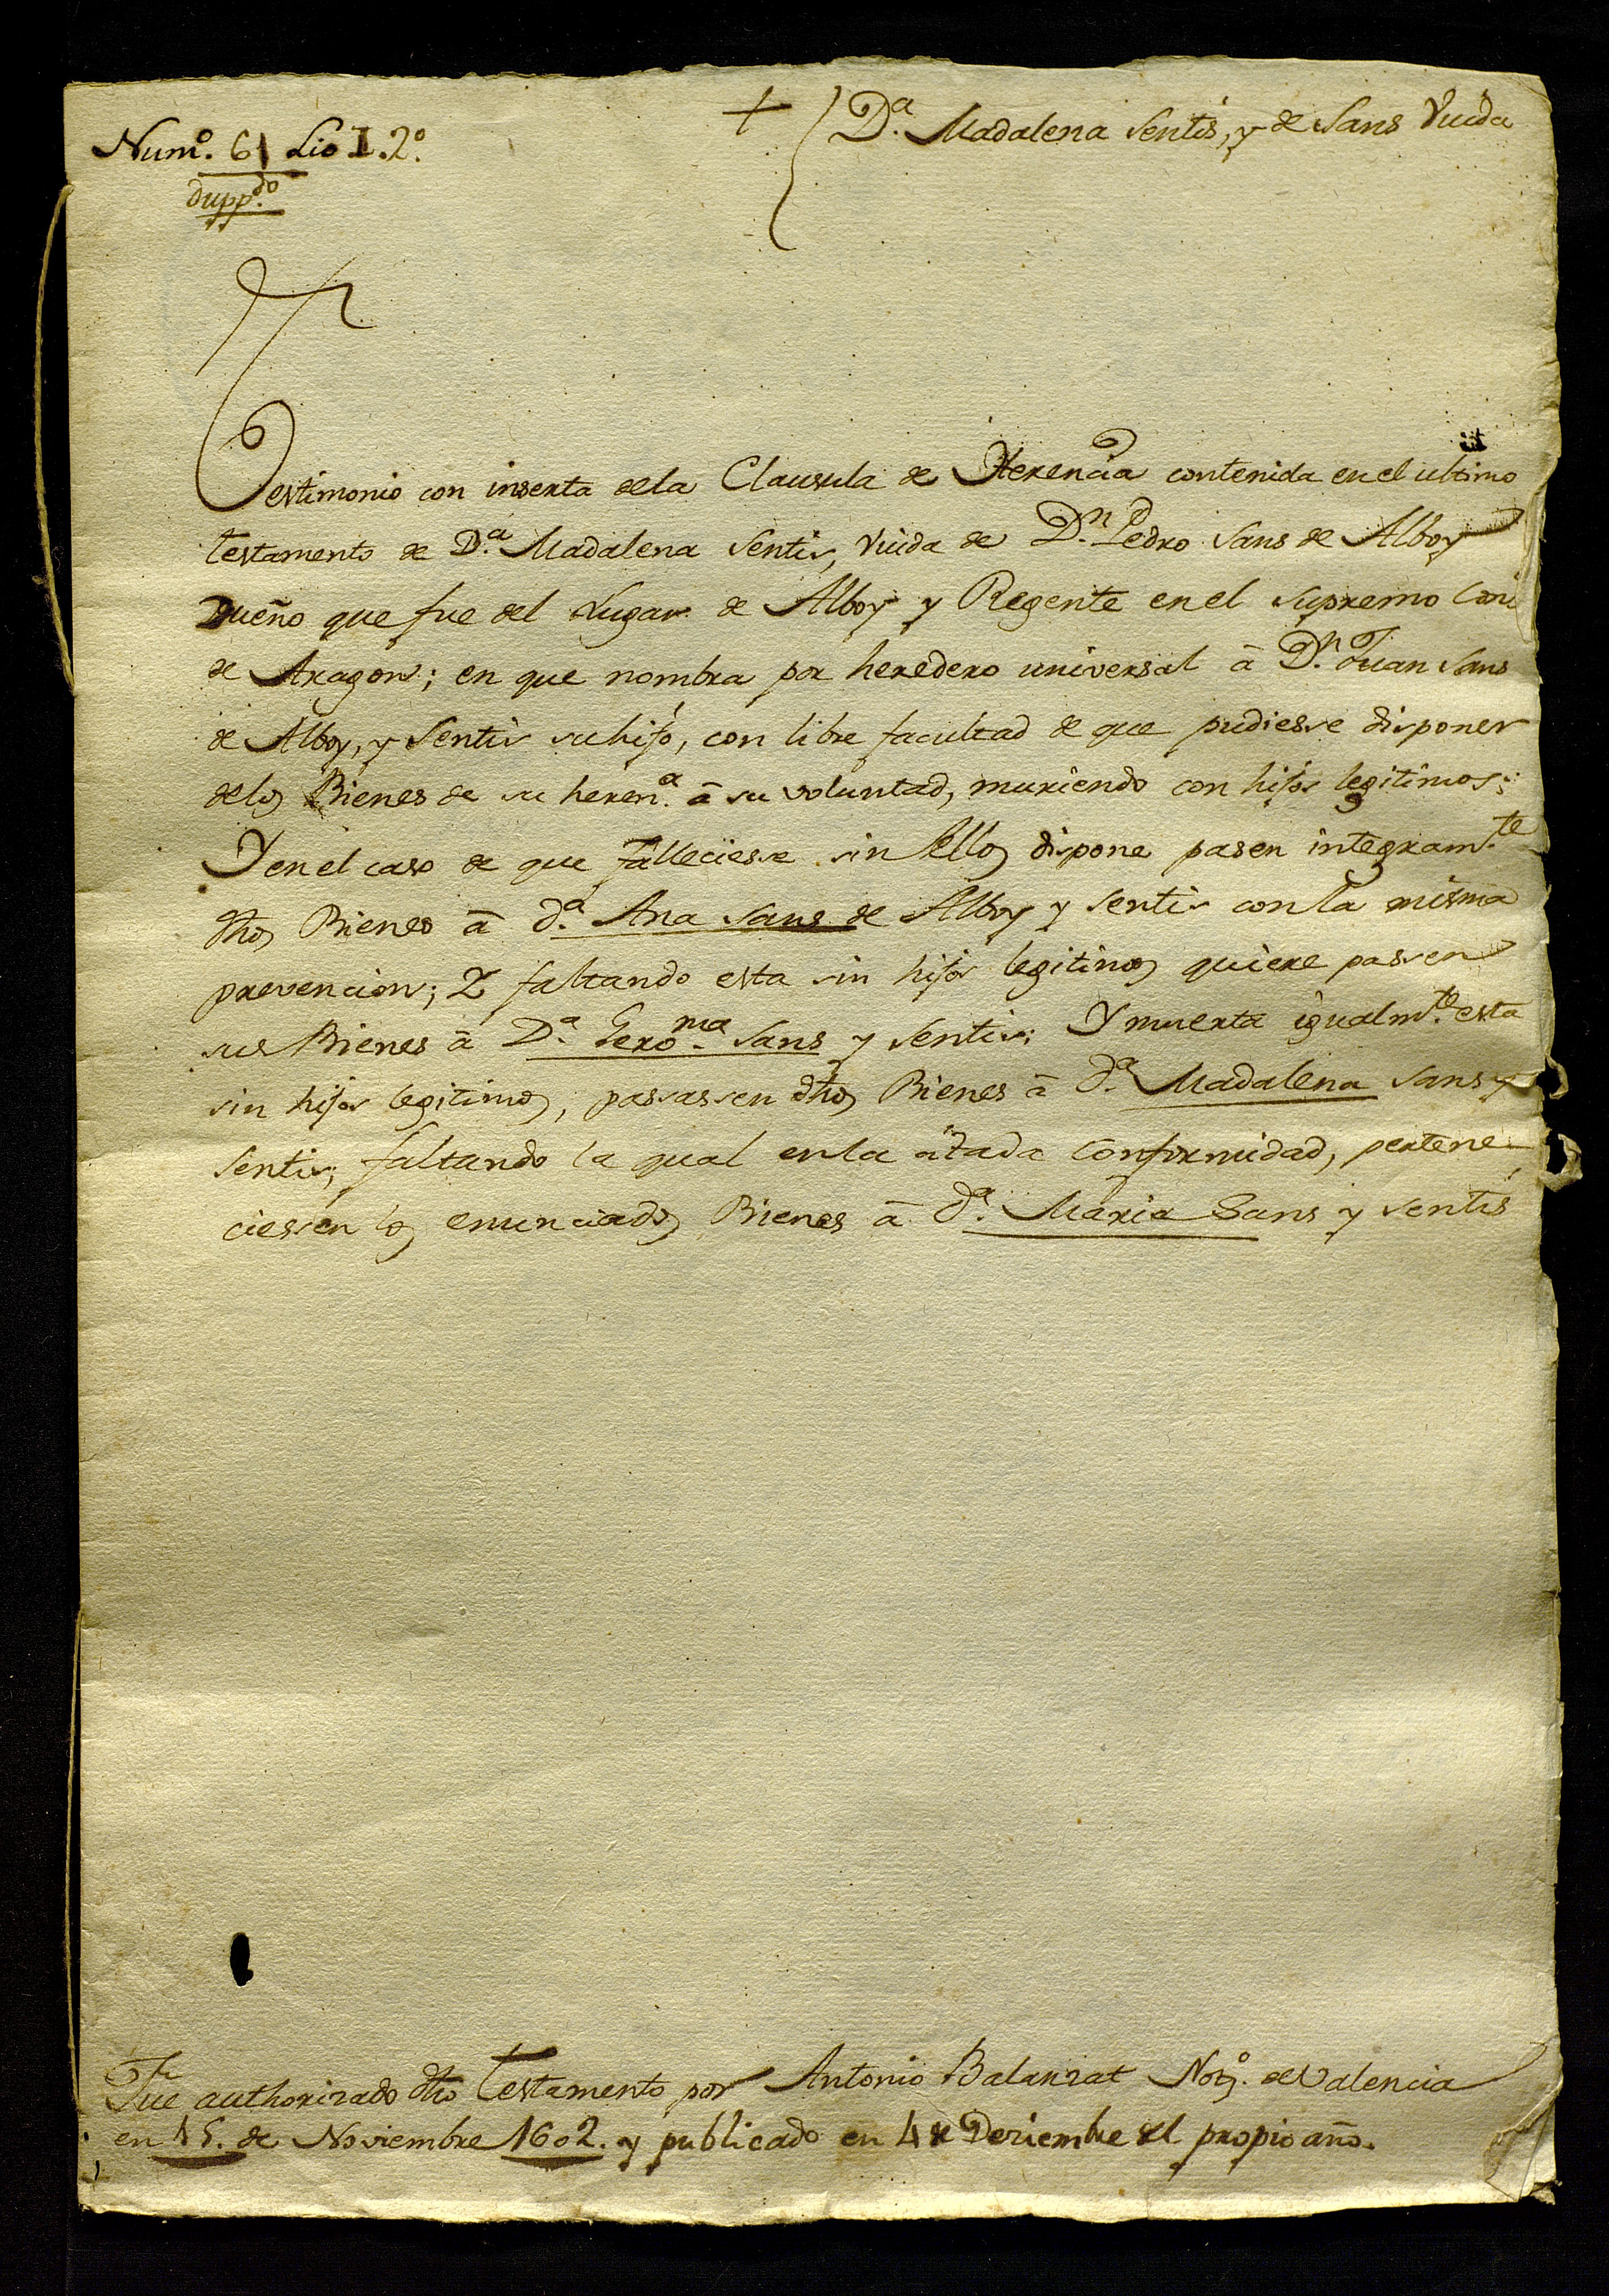 Num.º 61 Lio I. 2º.
dupp.do
+ D.ª Madalena Sentis, y de Sans Viuda
Testimonio con inserta dela Clausula de Herencia contenida en el ultimo
testamento de D.ª Madalena Sentis, Viuda de D.n Pedro Sans de Alboy
Dueño que fue del Lugar de Alboy y Regente en el supremo
de Aragon; en que nombra por heredero universal â D.n Juan Sans
de Alboy, y Sentis su hijo, con libre facultad de que pudiesse disponer
delos Bienes de su heren.ª â su voluntad, muriendo con hijos legitimos;
Y en el caso de que falleciesse sin Ellos dispone pasen integram.te
dhos Bienes â d.ª Ana Sans de Alboy y Sentis con la misma
prevencion; Y faltando esta sin hijos legitimos quiere passen
sus Bienes â D.ª Gero.ma Sans y Sentis; Y muerta igualm.te esta
sin hijos legitimos, passassen dhos Bienes â d.ª Madalena Sans y
Sentis; faltando la qual en la citada conformidad, pertene-
ciessen los enunciados Bienes â d.ª Maria Sans y Sentis
Fue authorizado dho Testamento por Antonio Balanzat Not.º de Valencia
en 15. de Noviembre 1602. y publicado en 4 de Deziembre del propio año.